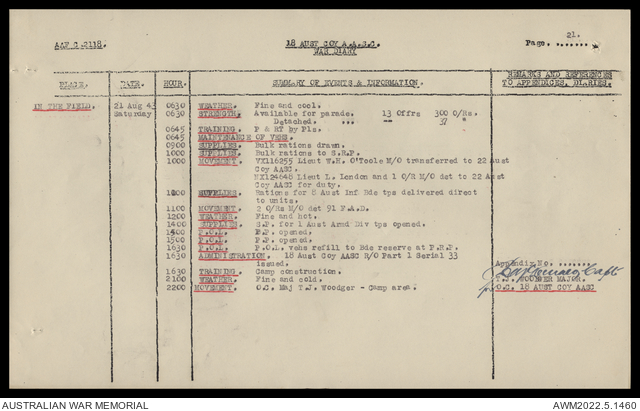 AAF C.2118.
18 AUST COY A.A.S.C.
WAR DIARY
Page. 21.
PLACE. DATE. HOUR. SUMMARY OF EVENTS & INFORMATION. REMARKS AND REFERENCES
TO APPENDICES, DIARIES.
IN THE FIELD. 21 Aug 43 0630 WEATHER. Fine and cool.
Saturday 0630 STRENGTH. Available for parade. 13 Offrs 300 O/Rs.
Detached. ... 37 "
0645 TRAINING. P & RT by Pls.
0645 MAINTENANCE OF VEHS.
0900 SUPPLIES. Bulk rations drawn.
1000 SUPPLIES. Bulk rations to S.R.P.
1000 MOVEMENT. VX116255 Lieut W.H. O'Toole M/O transferred to 22 Aust
Coy AASC.
NX124648 Lieut L. Lendon and 1 O/R M/O det to 22 Aust
Coy AASC for duty.
1000 SUPPLIES. Rations for 8 Aust Inf Bde tps delivered direct
to units.
1100 MOVEMENT. 2 O/Rs M/O det 91 F.A.D.
1200 WEATHER. Fine and hot.
1400 SUPPLIES. S.P. for 1 Aust Armd Div tps opened.
1400 P.O.L. P.P. opened.
1500 P.O.L. P.P. opened.
1630 P.O.L. P.O.L. vehs refill to Bde reserve at P.R.P.
1630 ADMINISTRATION. 18 Aust Coy AASC R/O Part 1 Serial 33
issued. Appendix No. .......
1630 TRAINING. Camp construction. Capt
2100 WEATHER. Fine and cold. T.J. WOODGER MAJOR.
2200 MOVEMENT. O.C. Maj T.J. Woodger - Camp area. O.C. 18 AUST COY AASC
AUSTRALIAN WAR MEMORIAL
AWM2022.5.1460